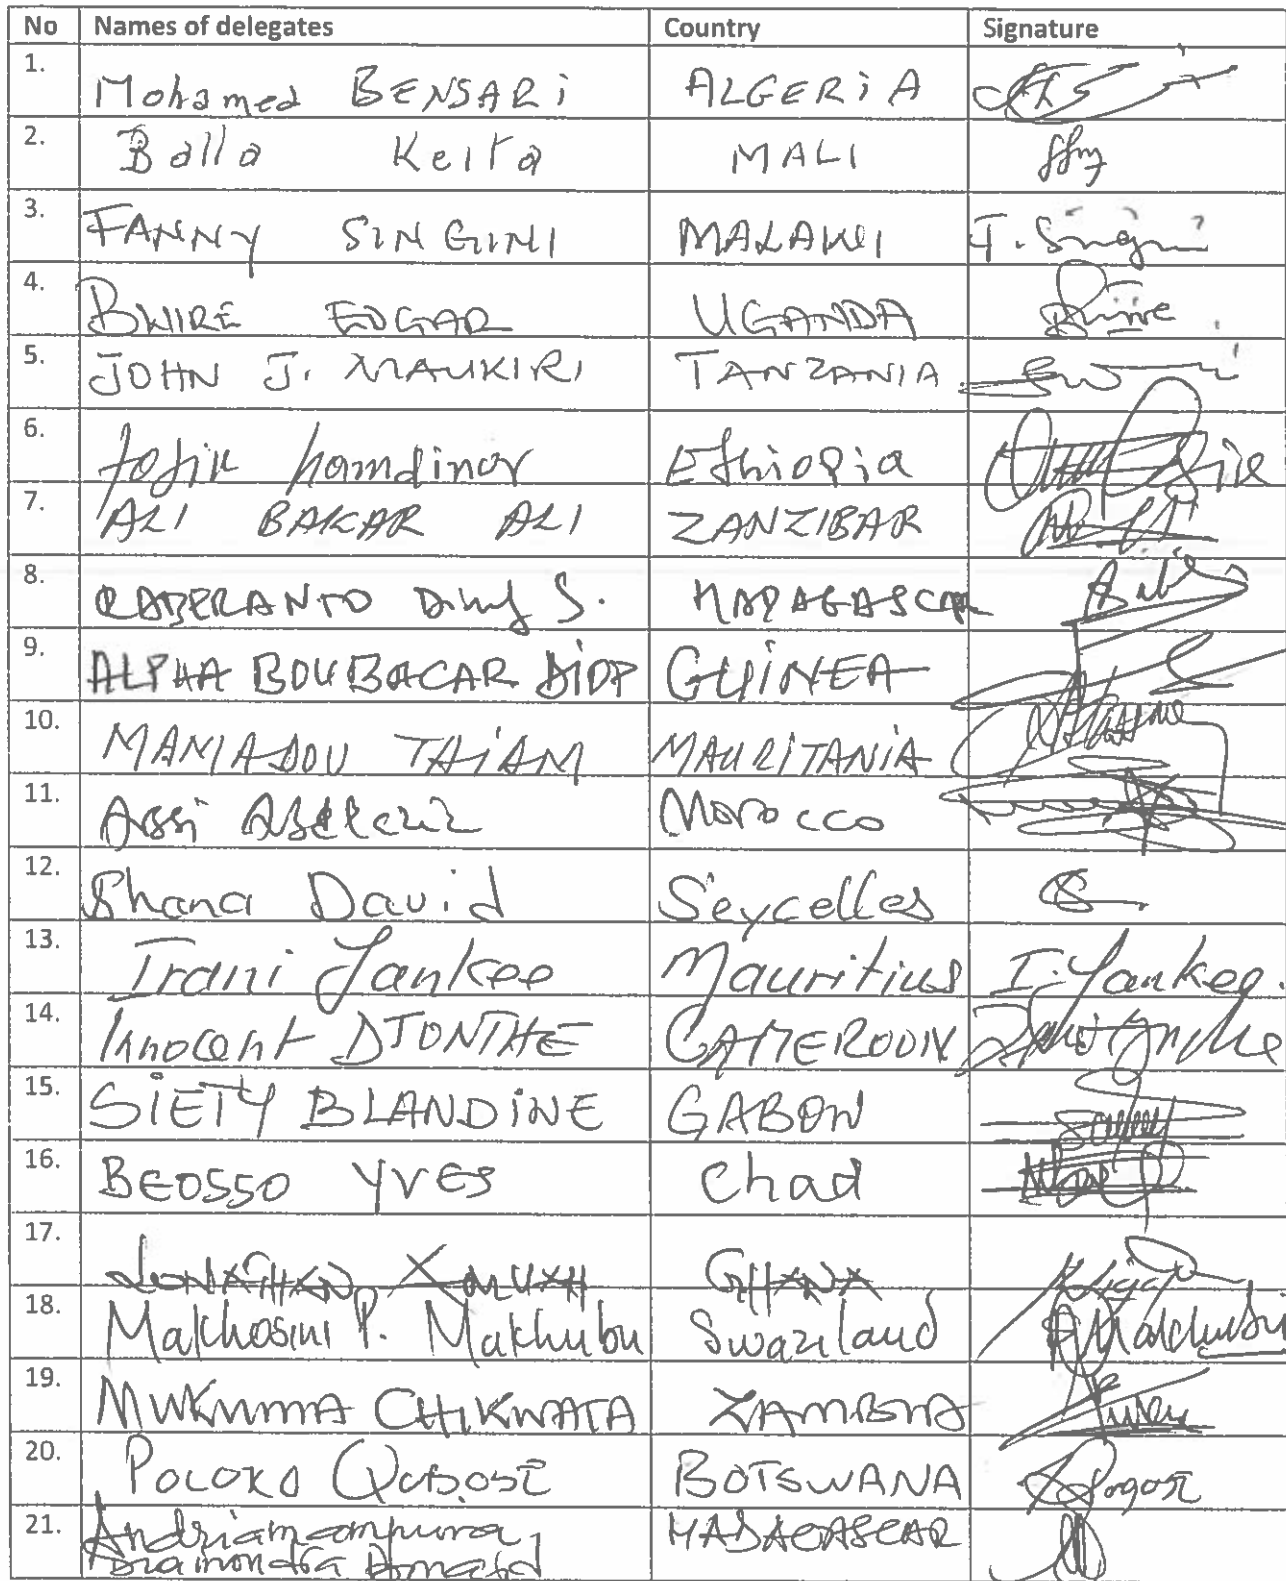 No Names of delegates Country Signature
1. Mohamed BENSARi ALGERiA
2. Balla Keita MALI
3. FANNY SINGINI MALAWI F. Singini
4. BWIRE EDGAR UGANDA Bwire
5. JOHN J. MAUKIRI TANZANIA
6. tofik hamdinor Ethiopia
7. ALI BAKAR ALI ZANZIBAR
8. S. MADAGASCAR
9. ALPHA BOUBACAR DiOP GUiNEA
10. MAMADOU THiAM MAURITANIA
11. Assi Abdelaziz Morocco
12. Shana David Seycelles
13. Irani Yankee Mauritius I. Yankee.
14. Innocent DJONTHE CAMEROUN
15. SiETY BLANDiNE GABON
16. BEOSSO YVES Chad
17. JONATHAN GHANA
18. Makhosini P. Makhubu Swaziland PMakhubu
19. CHIKWATA ZAMBIA
20. POLOKO BOTSWANA
21. Andriamampurra MADAGASCAR